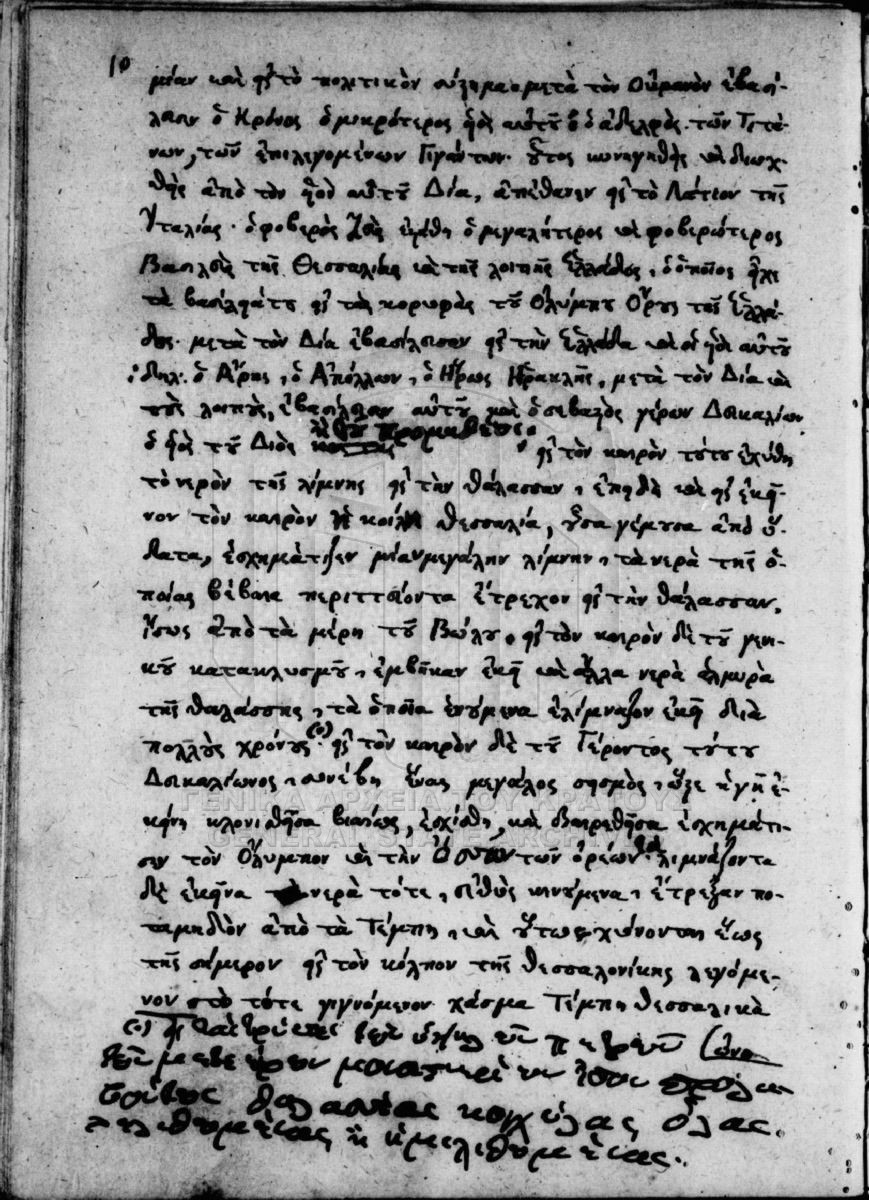 10
μίαν καὶ εἰς τὸ πολιτικὸν σύστημα· μετὰ τὸν Οὐρανὸν ἐβασί-
λευσεν ὁ Κρόνος ὁ μικρότερος υἱὸς αὐτοῦ ὁ ἀδελφὸς τῶν Τιτά-
νων, τῶν ἐπιλεγομένων Γιγάντων· οὗτος κυνηγηθεὶς καὶ διωχ-
θεὶς ἀπὸ τὸν υἱὸν αὐτοῦ Δία, ἀπέθανεν εἰς τὸ Λάτιον τῆς
Ἰταλίας· ὁ φοβερὸς Ζεὺς ὁ μεγαλήτερος καὶ φοβερώτερος
Βασιλεὺς τῆς Θεσσαλίας καὶ τῆς λοιπῆς Ἑλλάδος, ὁ ὁποῖος εἶχε
τὰ βασίλειά του εἰς τὰς κορυφὰς τοῦ Ὀλύμπου Ὄρους τῆς Ἑλλά-
δος· μετὰ τὸν Δία ἐβασίλευσαν εἰς τὴν Ἑλλάδα καὶ οἱ υἱοὶ αὐτοῦ
δηλ. ὁ Ἄρης, ὁ Ἀπόλλων, ὁ Ἥρως Ἡρακλῆς, μετὰ τὸν Δία καὶ
τοὺς λοιποὺς, ἐβασίλευσαν αὐτοῦ καὶ ὁ σεβαστὸς γέρων Δευκαλίων
ὁ υἱὸς τοῦ Διὸς ἢ τοῦ Προμηθέως· εἰς τὸν καιρὸν τούτου ἐχύθη
τὸ νερὸν τῆς λίμνης εἰς τὴν θάλασσαν, ἐπειδὴ καὶ εἰς ἐκεῖ-
νον τὸν καιρὸν ἡ κοίλη Θεσσαλία, οὖσα γέμουσα ἀπὸ ὕ-
δατα, ἐσχημάτιζεν μίαν μεγάλην λίμνην, τὰ νερὰ τῆς ὁ-
ποίας βέβαια περιττεύοντα ἔτρεχον εἰς τὴν θάλασσαν,
ἴσως ἀπὸ τὰ μέρη τοῦ Βώλου· εἰς τὸν καιρὸν δὲ τοῦ γενι-
κοῦ κατακλυσμοῦ, ἐμβῆκαν ἐκεῖ καὶ ἄλλα νερὰ ἁλμυρὰ
τῆς θαλάσσης, τὰ ὁποῖα ἑνούμενα ἐλίμναζον ἐκεῖ διὰ
πολλοὺς χρόνους (ο)· εἰς τὸν καιρὸν δὲ τοῦ Γέροντος τούτου
Δευκαλίωνος, συνέβη ἕνας μεγάλος σεισμὸς, ὥστε ἡ γῆ ἐ-
κείνη κλονισθεῖσα βιαίως, ἐσχίσθη, καὶ διαιρεθεῖσα ἐσχημάτι-
σεν τὸν Ὄλυμπον καὶ τὴν Ὄσσαν τῶν ὀρέων· τὰ λιμνάζοντα
δὲ ἐκεῖνα νερὰ τότε, εὐθὺς κινούμενα, ἔτρεξαν πο-
ταμηδὸν ἀπὸ τὰ Τέμπη, καὶ οὕτως χύνονται ἕως
τῆς σήμερον εἰς τὸν κόλπον τῆς Θεσσαλονίκης λεγόμε-
νον στὸ τότε γιγνόμενον χάσμα Τέμπη Θεσσαλικὰ
(ο) εἰς
θαλασσίας κοχύλας ὅλας